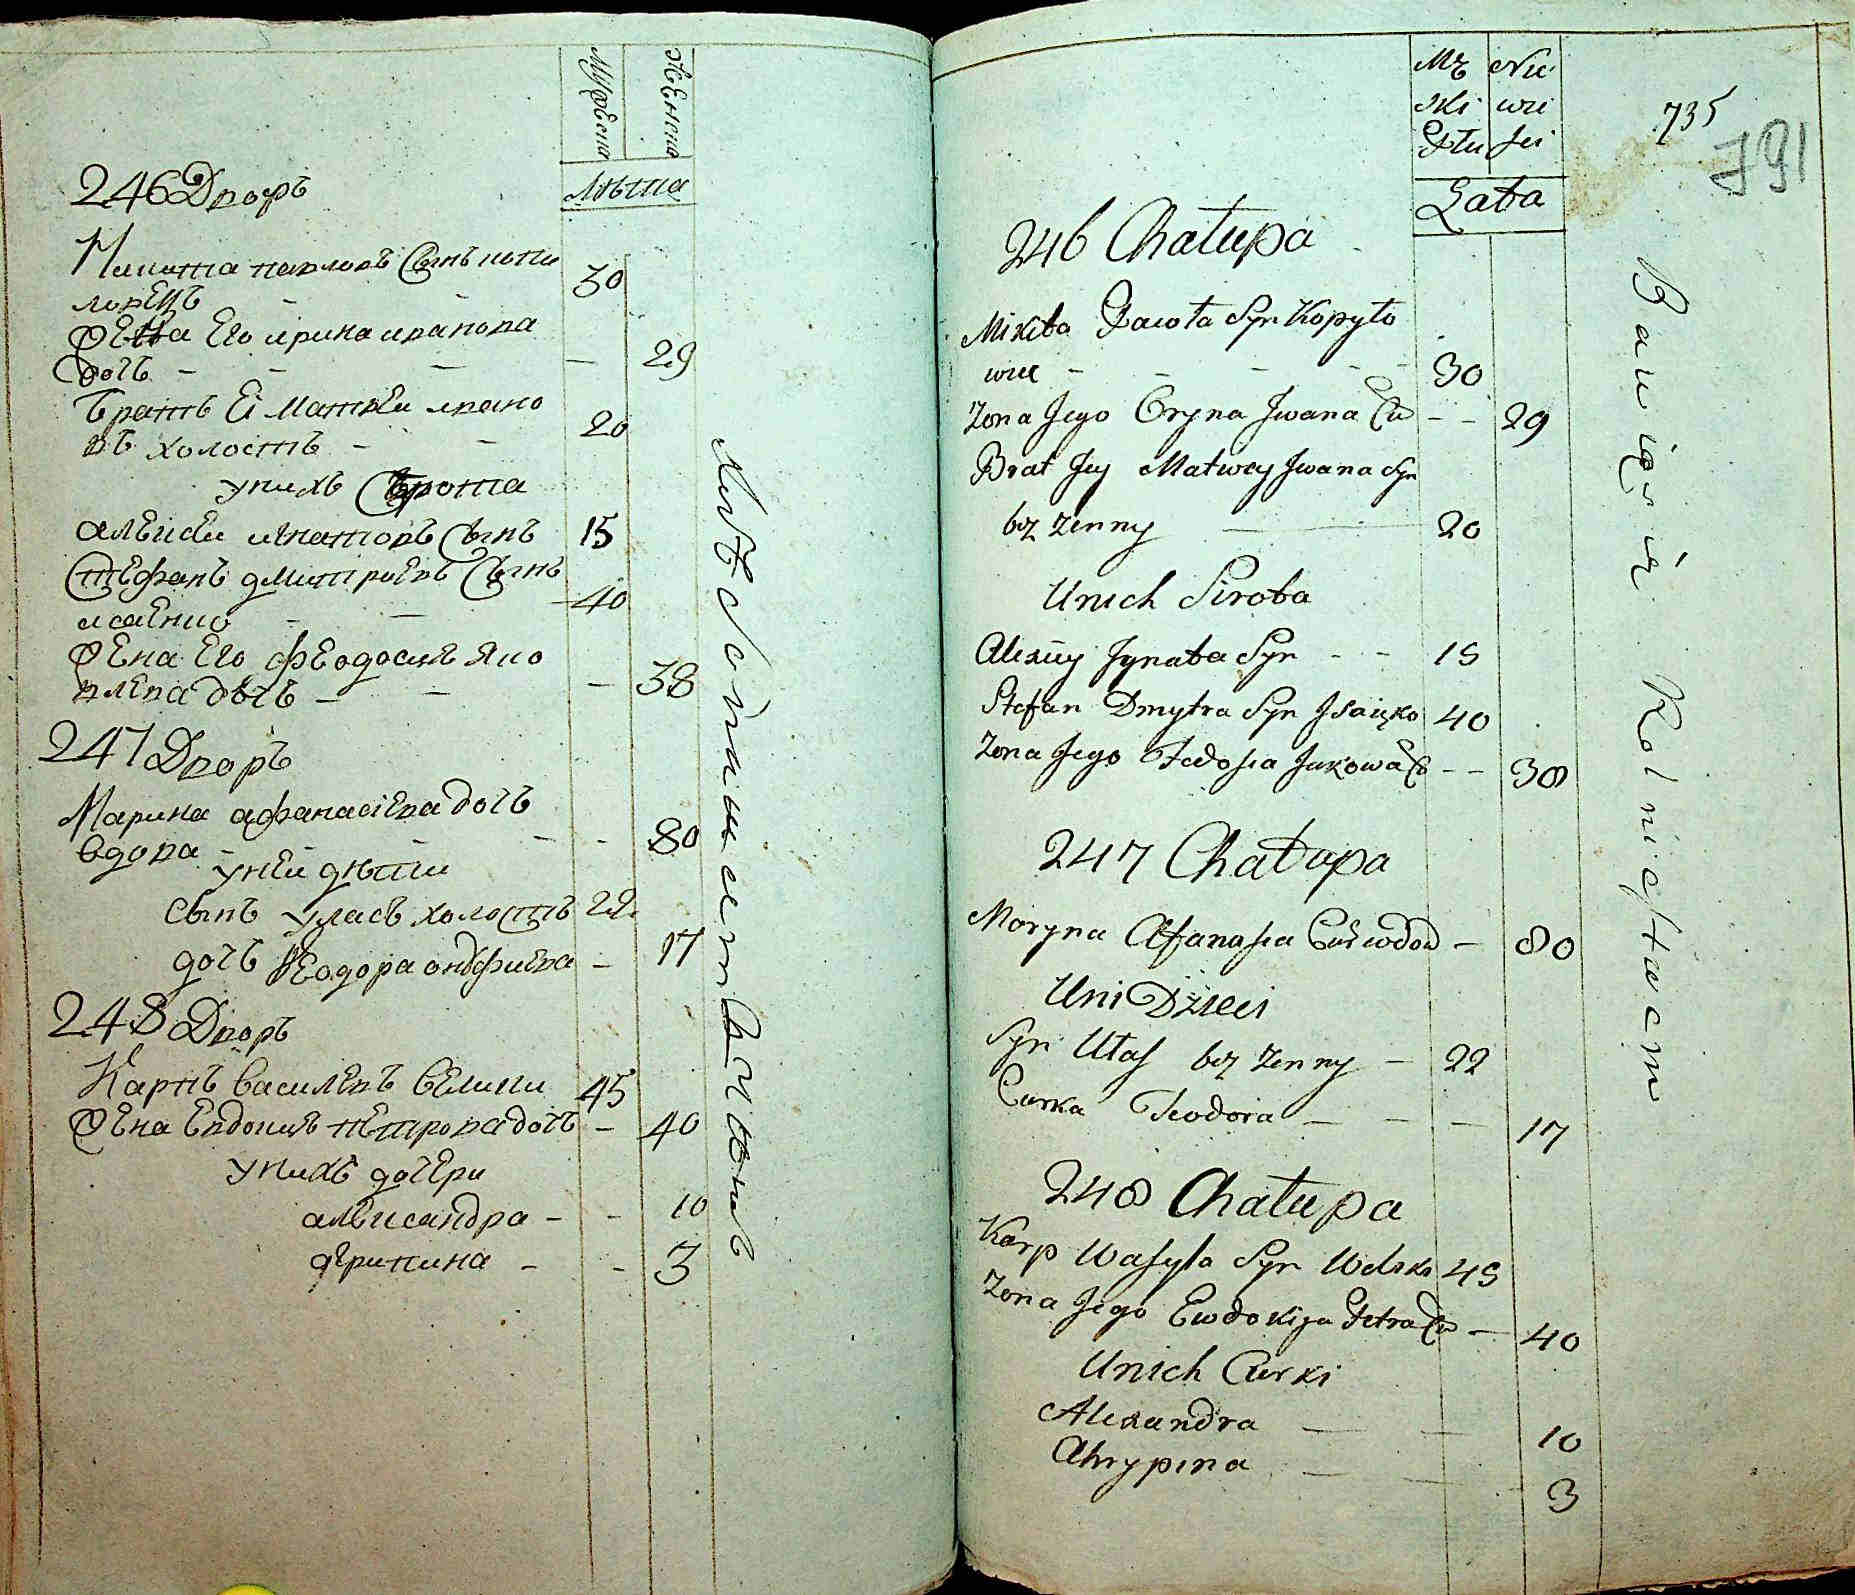 Мужеска
Женска
Лѣта
246 Дворъ
Микита павловъ Сынъ копи
ловецъ
жена Его ирина иванова
дочь
братъ Ей Матвѣи ивано
въ холостъ
у нихъ Сѣрота
алѣксѣи игнатовъ Сынъ
Стефанъ дмитриевъ Сынъ
исаенко
жена Его феодосия яко
влева дочь
247 Дворъ
Марина афанасіева дочь
вдова
у нѣи дѣти
сынъ уласъ холостъ
дочь Феодора онофриева
248 Дворъ
Карпъ василевъ велики
жена Евдокия петрова дочь
у нихъ дочери
александра
агрипина
30
29
20
15
40
38
80
22
17
45
40
10
3
Mę Nie
ski wie
Płu ści
Lata
735
791
246 Chałupa
Mikita Pawła Syn Kopyło
wiec
30
Zona Jego Oryna Jwana Cu
29
Brat Jey Matwey Jwana Syn
bez zenny
20
Unich Sirota
Alexiey Jgnata Syn
15
Stefan Dmytra Syn Jsaienko
40
Zona Jego Fedosia Jakowa Cu
38
247 Chałupa
Maryna Afanasia Cur wdow
80
Uni Dzieci
Syn Ułas bez zenny
22
Curka Feodora
17
248 Chałupa
Karp Wasyla Syn Weliko
45
Zona Jego Ewdokija Petra Cu
40
Unich Curki
Alexandra
10
Ahrypina
3